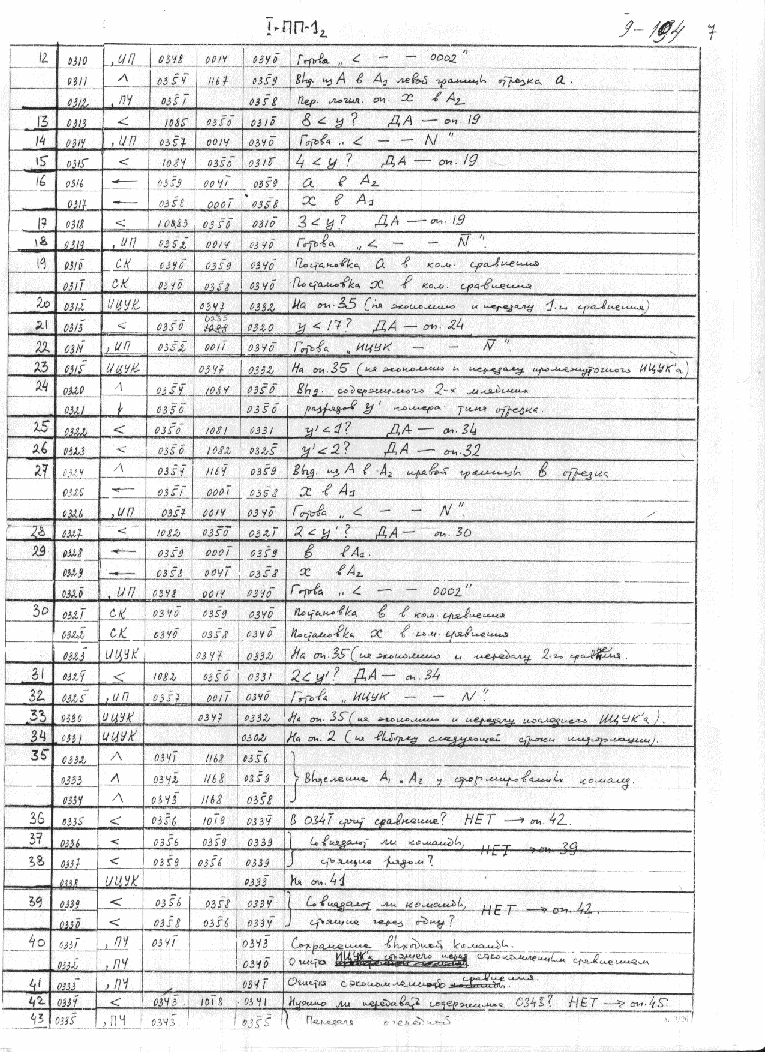 I-ПП-1₂
9-194 7
12 0310 , ИП 0348 0014 0340̄ Готовa „< — — 0002"
0311 ∧ 0354̄ 1167 0359 Выд. из A в A₂ левой границы отрезка a.
0312 , ПЧ 0351̄ 0358 Пер. логич. оп. x в A₂
13 0313 < 1085 0350̄ 0310̄ 8 < y? ДА — оп. 19
14 0314 , ИП 0357 0014 0340̄ Готова „< — — N"
15 0315 < 1084 0350̄ 0310̄ 4 < y? ДА — оп. 19
16 0316 ← 0359 0041̄ 0359 a в A₂
0317 ← 0358 0001̄ 0358 x в A₃
17 0318 < 1083 0350̄ 0310̄ 3 < y? ДА — оп. 19
18 0319 , ИП 0352̄ 0014 0340̄ Готова „< — — N̄".
19 0310̄ СК 0340̄ 0359 0340̄ Постановка a в ком. сравнения
0311̄ СК 0340̄ 0358 0340̄ Постановка x в ком. сравнения
20 0312̄ ИЦУК 0347 0332 На оп. 35 (на экономию и передачу 1-го сравнения)
21 0313̄ < 0350̄ 0320 y < 17? ДА — оп. 24
22 0314̄ , ИП 0352̄ 0011̄ 0340̄ Готова „ИЦУК — — N̄"
23 0315̄ ИЦУК 0347 0332 На оп. 35 (на экономию и передачу промежуточного ИЦУК'а)
24 0320 ∧ 0354̄ 1084 0350̄ Выд. содержимого 2-х младших
0321 ↓ 0350̄ 0350̄ разрядов y' номера типа отрезка.
25 0322 < 0350̄ 1081 0331 y' < 1? ДА — оп. 34
26 0323 < 0350̄ 1082 0325̄ y' < 2? ДА — оп. 32
27 0324 ∧ 0354̄ 1167 0359 Выд. из A в A₂ правой границы в отрезка
0325 ← 0351̄ 0001̄ 0358 x в A₃
0326 , ИП 0357 0014 0340̄ Готова „< — — N"
28 0327 < 1082 0350̄ 0321̄ 2 < y'? ДА — оп. 30
29 0328 ← 0359 0001̄ 0359 в в A₃.
0329 ← 0358 0041̄ 0358 x в A₂
0320̄ , ИП 0348 0014 0340̄ Готова „< — — 0002"
30 0321̄ СК 0340̄ 0359 0340̄ Постановка в в ком. сравнения
0322̄ СК 0340̄ 0358 0340̄ Постановка x в ком. сравнения
0323̄ ИЦУК 0347 0332 На оп. 35 (на экономию и передачу 2-го сравнения.
31 0324̄ < 1082 0350̄ 0331 2 < y'? ДА — оп. 34
32 0325̄ , ИП 0357 0011̄ 0340̄ Готова „ИЦУК — — N".
33 0330 ИЦУК 0347 0332 На оп. 35 (на экономию и передачу последнего ИЦУК'а).
34 0331 ИЦУК 0302 На оп. 2 (на выборку следующей строки информации).
35 0332 ∧ 0341̄ 1168 0356
0333 ∧ 0342̄ 1168 0359 } Выделение A₁ и A₂ у сформированных команд.
0334 ∧ 0343̄ 1168 0358
36 0335 < 0356 1018 0334̄ В 0341̄ стоит сравнение? НЕТ → оп. 42.
37 0336 < 0356 0359 0339 } Совпадают ли команды,
38 0337 < 0359 0356 0339 } стоящие рядом? НЕТ → оп. 39
0338 ИЦУК 0333̄ На оп. 41
39 0339 < 0356 0358 0334̄ } Совпадают ли команды,
0330̄ < 0358 0356 0334̄ } стоящие через одну? НЕТ → оп. 42.
40 0331̄ , ПЧ 0341̄ 0343̄ Сохранение выходной команды.
0332̄ , ПЧ 0340̄ Очистка ИЦУК'а стоящего перед сэкономленным сравнением
41 0333̄ , ПЧ 0341̄ Очистка сэкономленного сравнения
42 0334̄ < 0343̄ 1018 0341 Нужно ли передавать содержимое 0343̄? НЕТ → оп. 45
43 0335̄ , ПЧ 0343̄ 0355̄ } Передача очередной